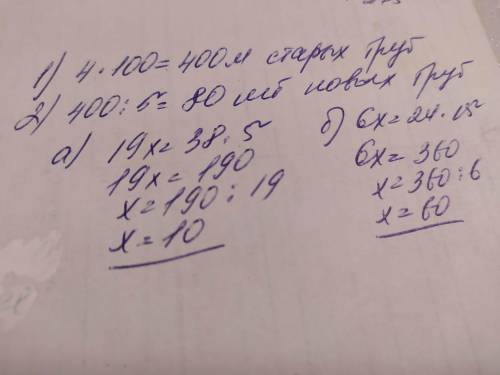 1) 4·100=400м старых труб
2) 400:5=80 шт новых труб
а) 19x=38·5
19x=190
x=190:19
x=10
б) 6x=24·15
6x=360
x=360:6
x=60